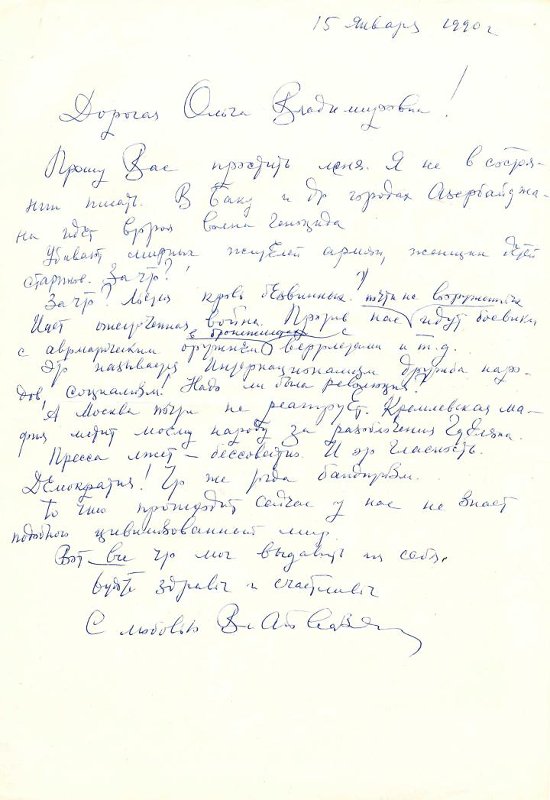 15 января 1990 г
Дорогая Ольга Владимировна!
Прошу Вас простить меня. Я не в состоя-
нии писать. В Баку и др городах Азербайджа-
на идёт вторая волна геноцида
Убивают мирных жителей армян, женщин детей
стариков. За что?!
За что? Льётся кровь безвинных. почти не вооружённых
Идет ожесточенная война. Против нас идут боевики
с автоматическим оружием вертолетами и т.д.
Это называется Интернационализм дружба наро-
дов, социализм! Надо ли была революция?
А Москва почти не реагирует. Кремлевская ма-
фия мстит моему народу за разоблачения Гдляна.
Пресса лжет – бессовестно. И это гласность.
Демократия! Что же тогда бандитизм.
То что происходит сейчас у нас не знает
подобного цивилизованный мир.
Вот все что мог выдавить из себя.
Будьте здравы и счастливы
С любовью